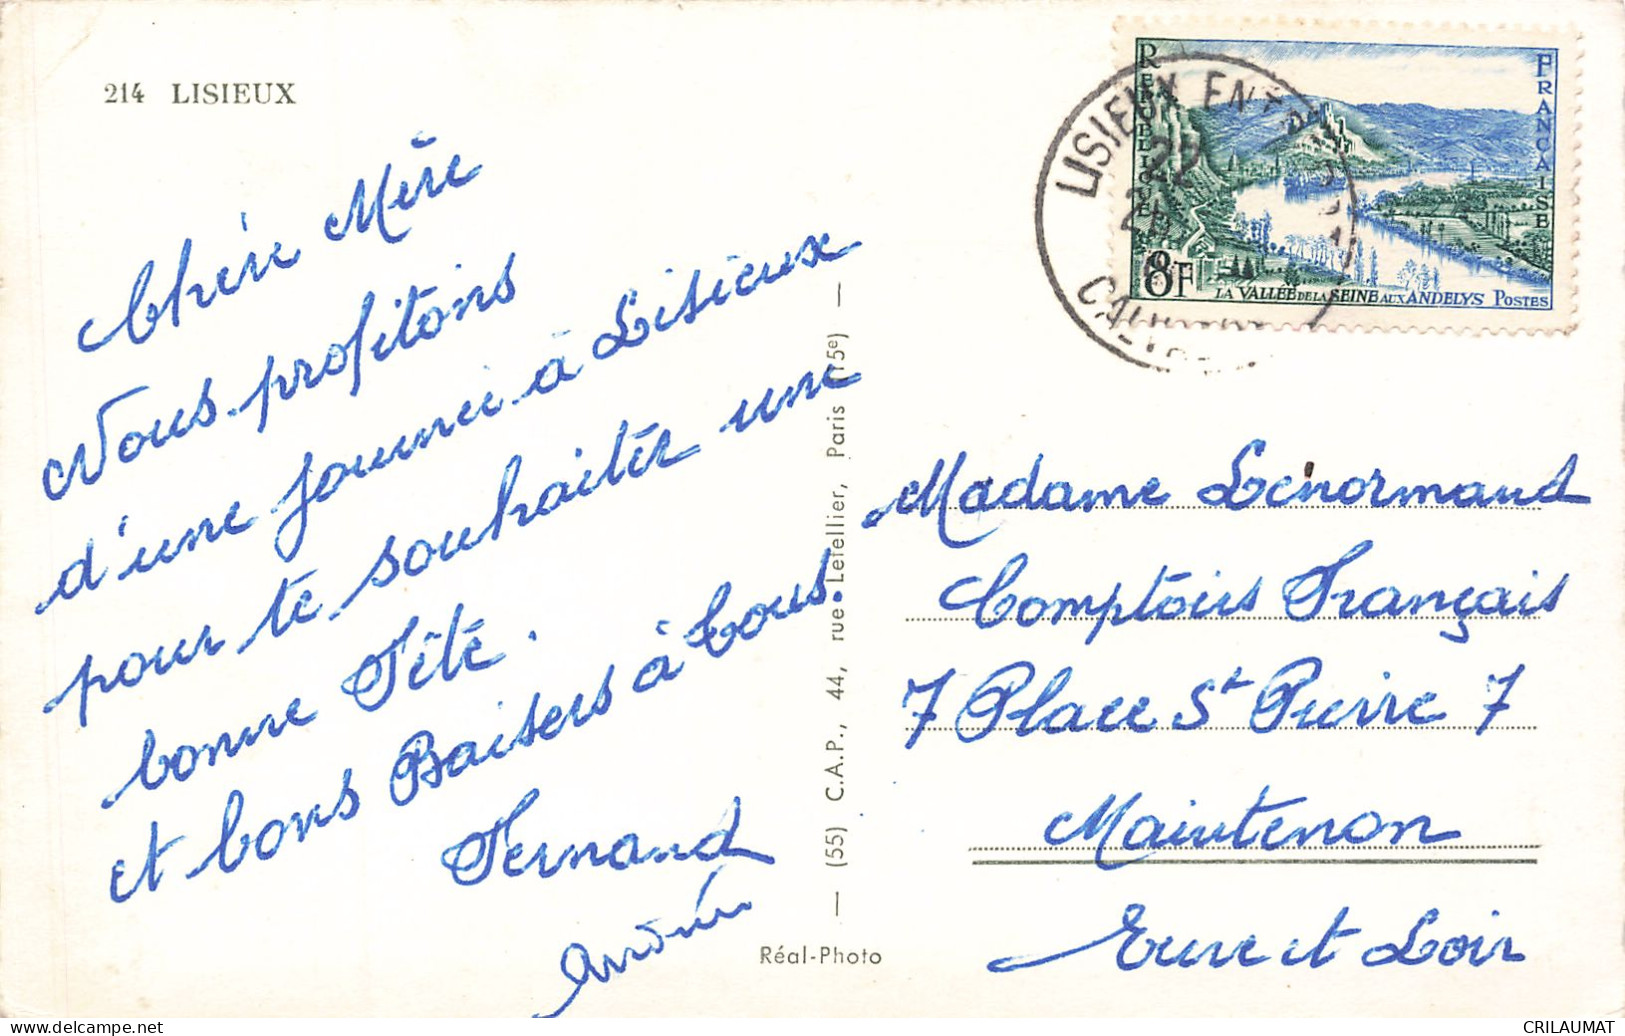 214 LISIEUX
Chère Mère
Nous profitons
d'une journée à Lisieux
pour te souhaiter une
bonne Fête.
et bons Baisers à Tous.
Fernand
(55) C.A.P., 44, rue Letellier, Paris (15e)
Réal-Photo
REPUBLIQUE FRANCAISE
8F
LA VALLÉE DE LA SEINE AUX ANDELYS POSTES
LISIEUX
22
CALVADOS
Madame Lenormand
Comptoirs Français
7 Place St Pierre 7
Maintenon
Eure et Loir
CRILAUMAT